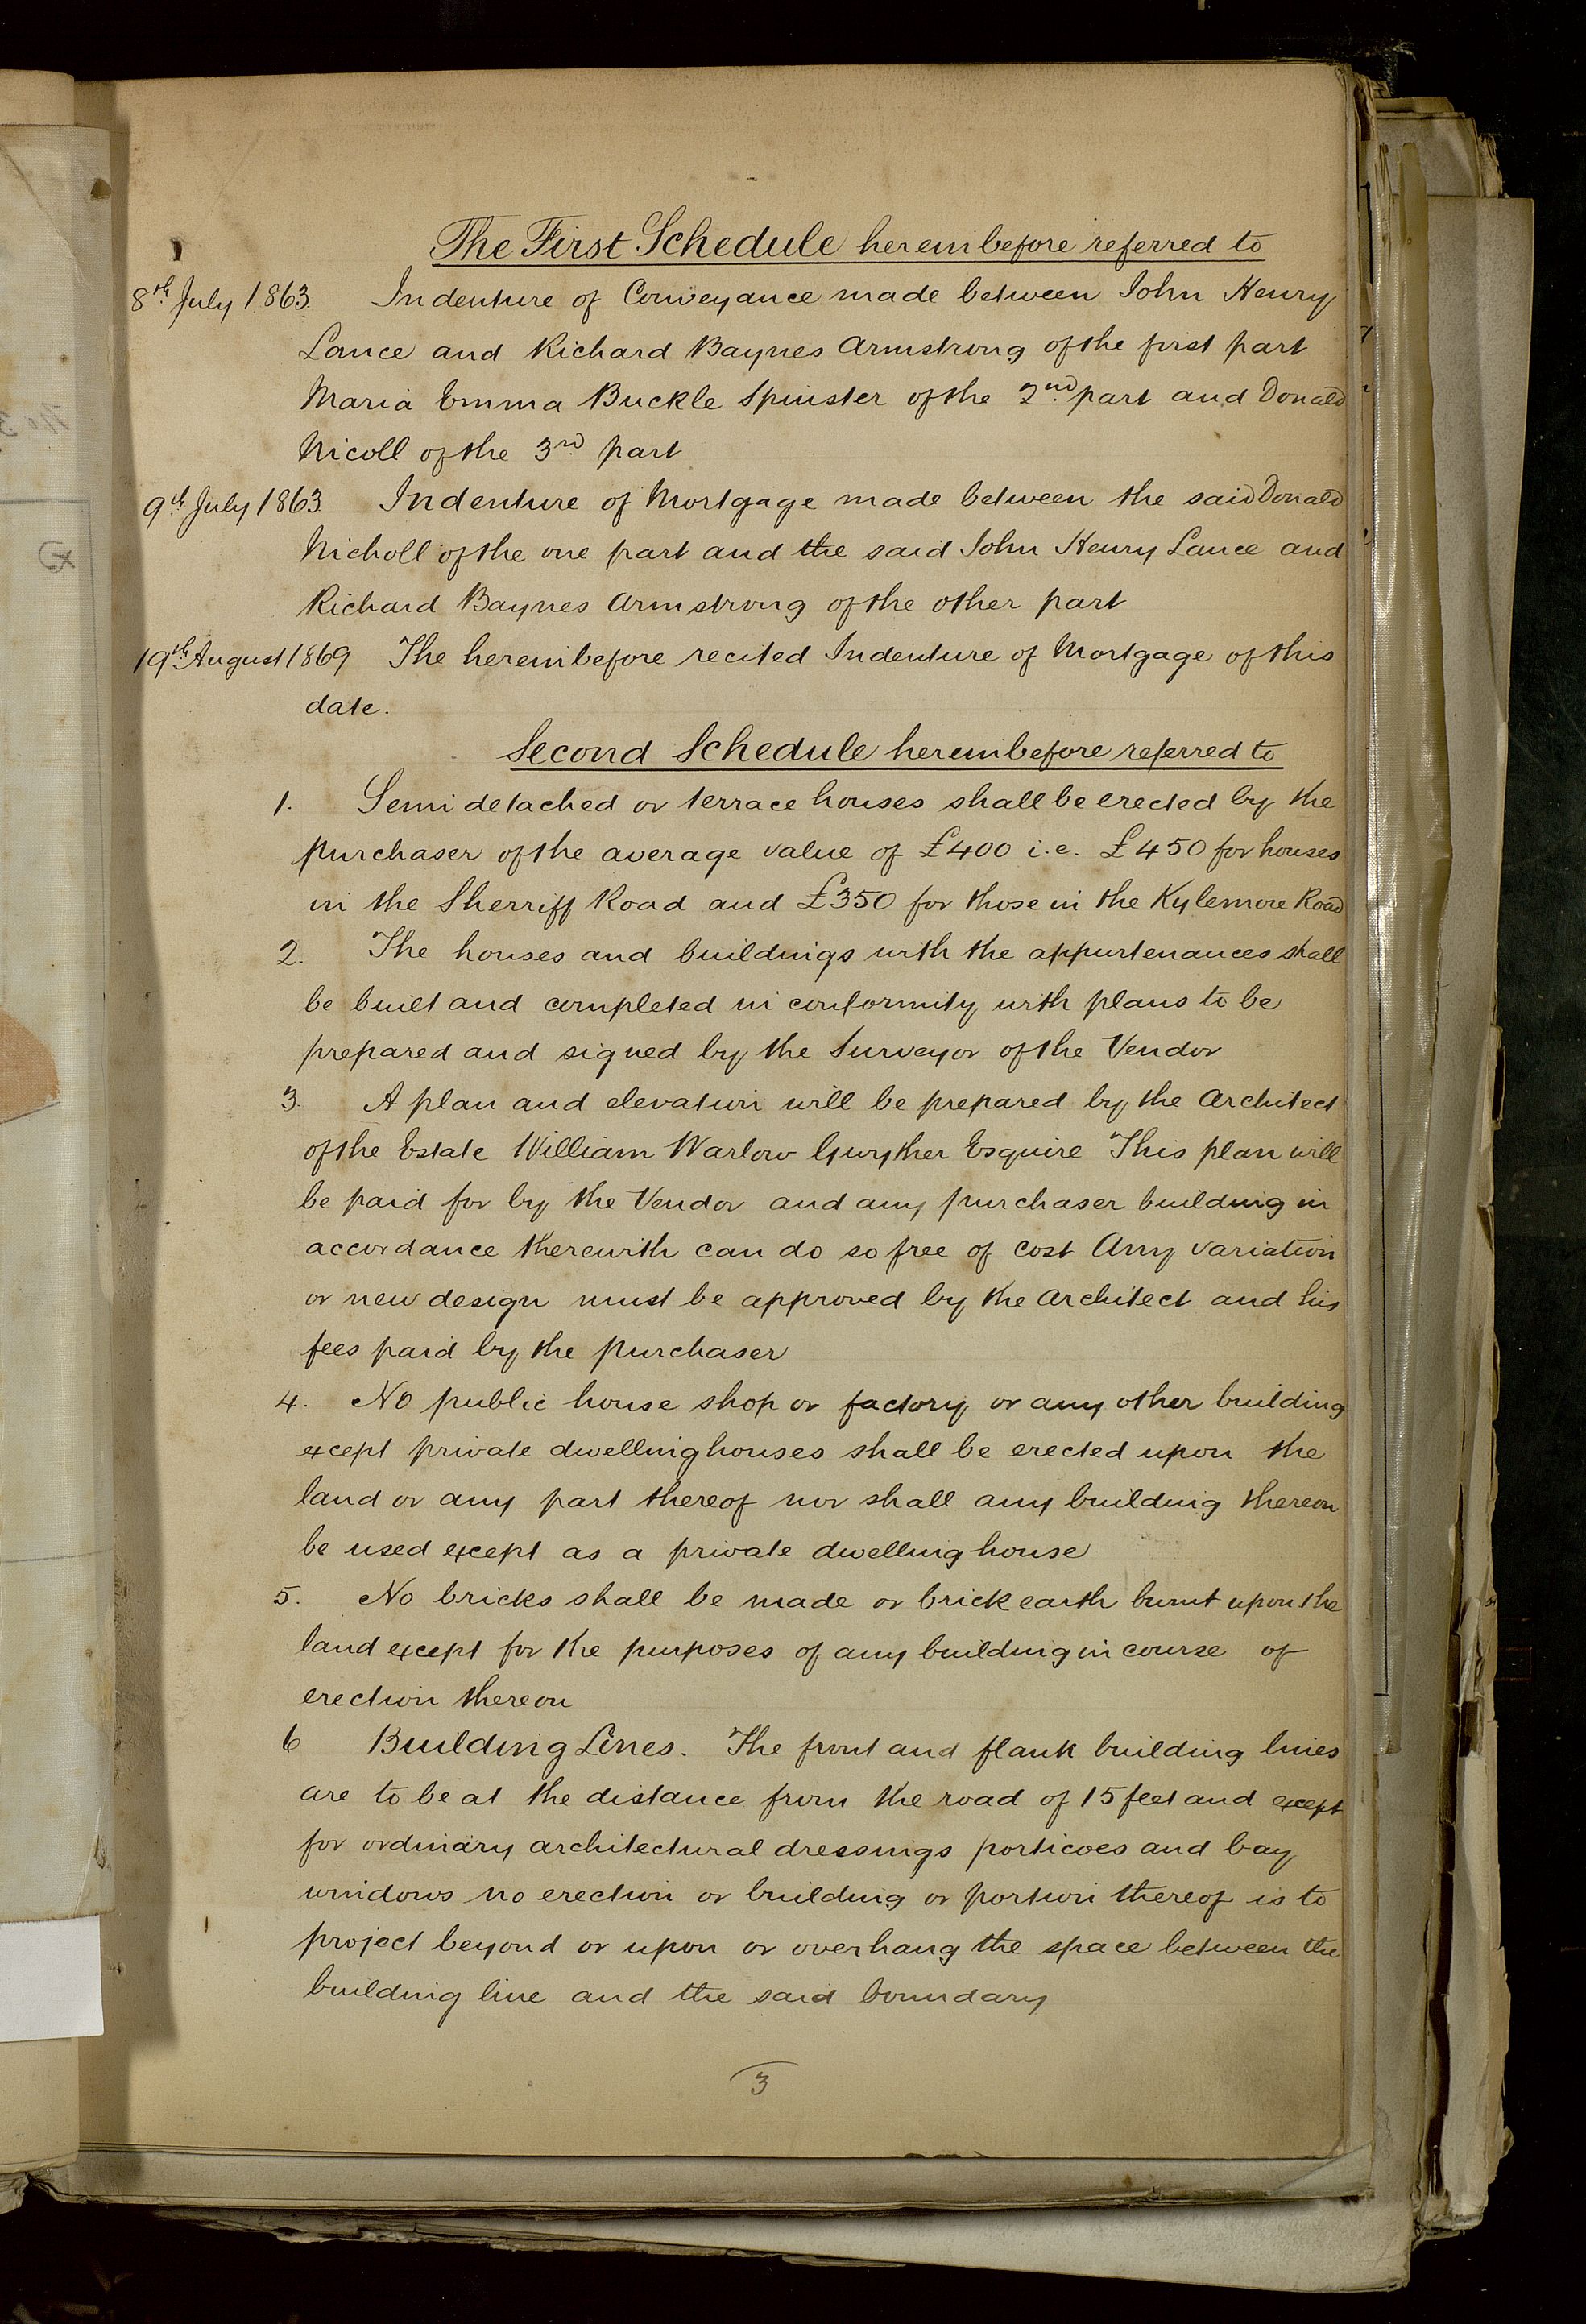 The First Schedule hereinbefore referred to
8th July 1863. Indenture of Conveyance made between John Henry
Lance and Richard Baynes Armstrong of the first part
Maria Emma Buckle Spinster of the 2nd part and Donald
Nicoll of the 3rd part
9th July 1863 Indenture of Mortgage made between the said Donald
Nicholl of the one part and the said John Henry Lance and
Richard Baynes Armstrong of the other part
19th August 1869 The hereinbefore recited Indenture of Mortgage of this
date.
Second Schedule hereinbefore referred to
1. Semi detached or terrace houses shall be erected by the
purchaser of the average value of £400 i.e. £450 for houses
in the Sherriff Road and £350 for those in the Kylemore Road
2. The houses and buildings with the appurtenances shall
be built and completed in conformity with plans to be
prepared and signed by the Surveyor of the Vendor
3. A plan and elevation will be prepared by the Architect
of the Estate William Warlow Gwyther Esquire This plan will
be paid for by the Vendor and any purchaser building in
accordance therewith can do so free of cost Any variation
or new design must be approved by the Architect and his
fees paid by the purchaser
4. No public house shop or factory or any other building
except private dwellinghouses shall be erected upon the
land or any part thereof nor shall any building thereon
be used except as a private dwelling house
5. No bricks shall be made or brick earth burnt upon the
land except for the purposes of any building in course of
erection thereon
6 Building Lines. The front and flank building lines
are to be at the distance from the road of 15 feet and except
for ordinary architectural dressings porticoes and bay
windows no erection or building or portion thereof is to
project beyond or upon or overhang the space between the
building line and the said boundary
3